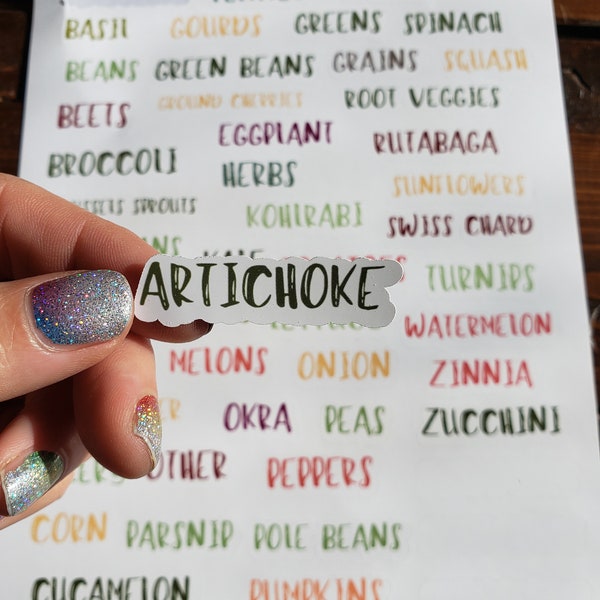 BASIL GOURDS GREENS SPINACH
BEANS GREEN BEANS GRAINS SQUASH
BEETS GROUND CHERRIES ROOT VEGGIES
EGGPLANT RUTABAGA
BROCCOLI HERBS SUNFLOWERS
SPROUTS KOHIRABI SWISS CHARD
KALE
ARTICHOKE TURNIPS
WATERMELON
MELONS ONION ZINNIA
OKRA PEAS ZUCCHINI
OTHER PEPPERS
CORN PARSNIP POLE BEANS
CUCAMELON PUMPKINS